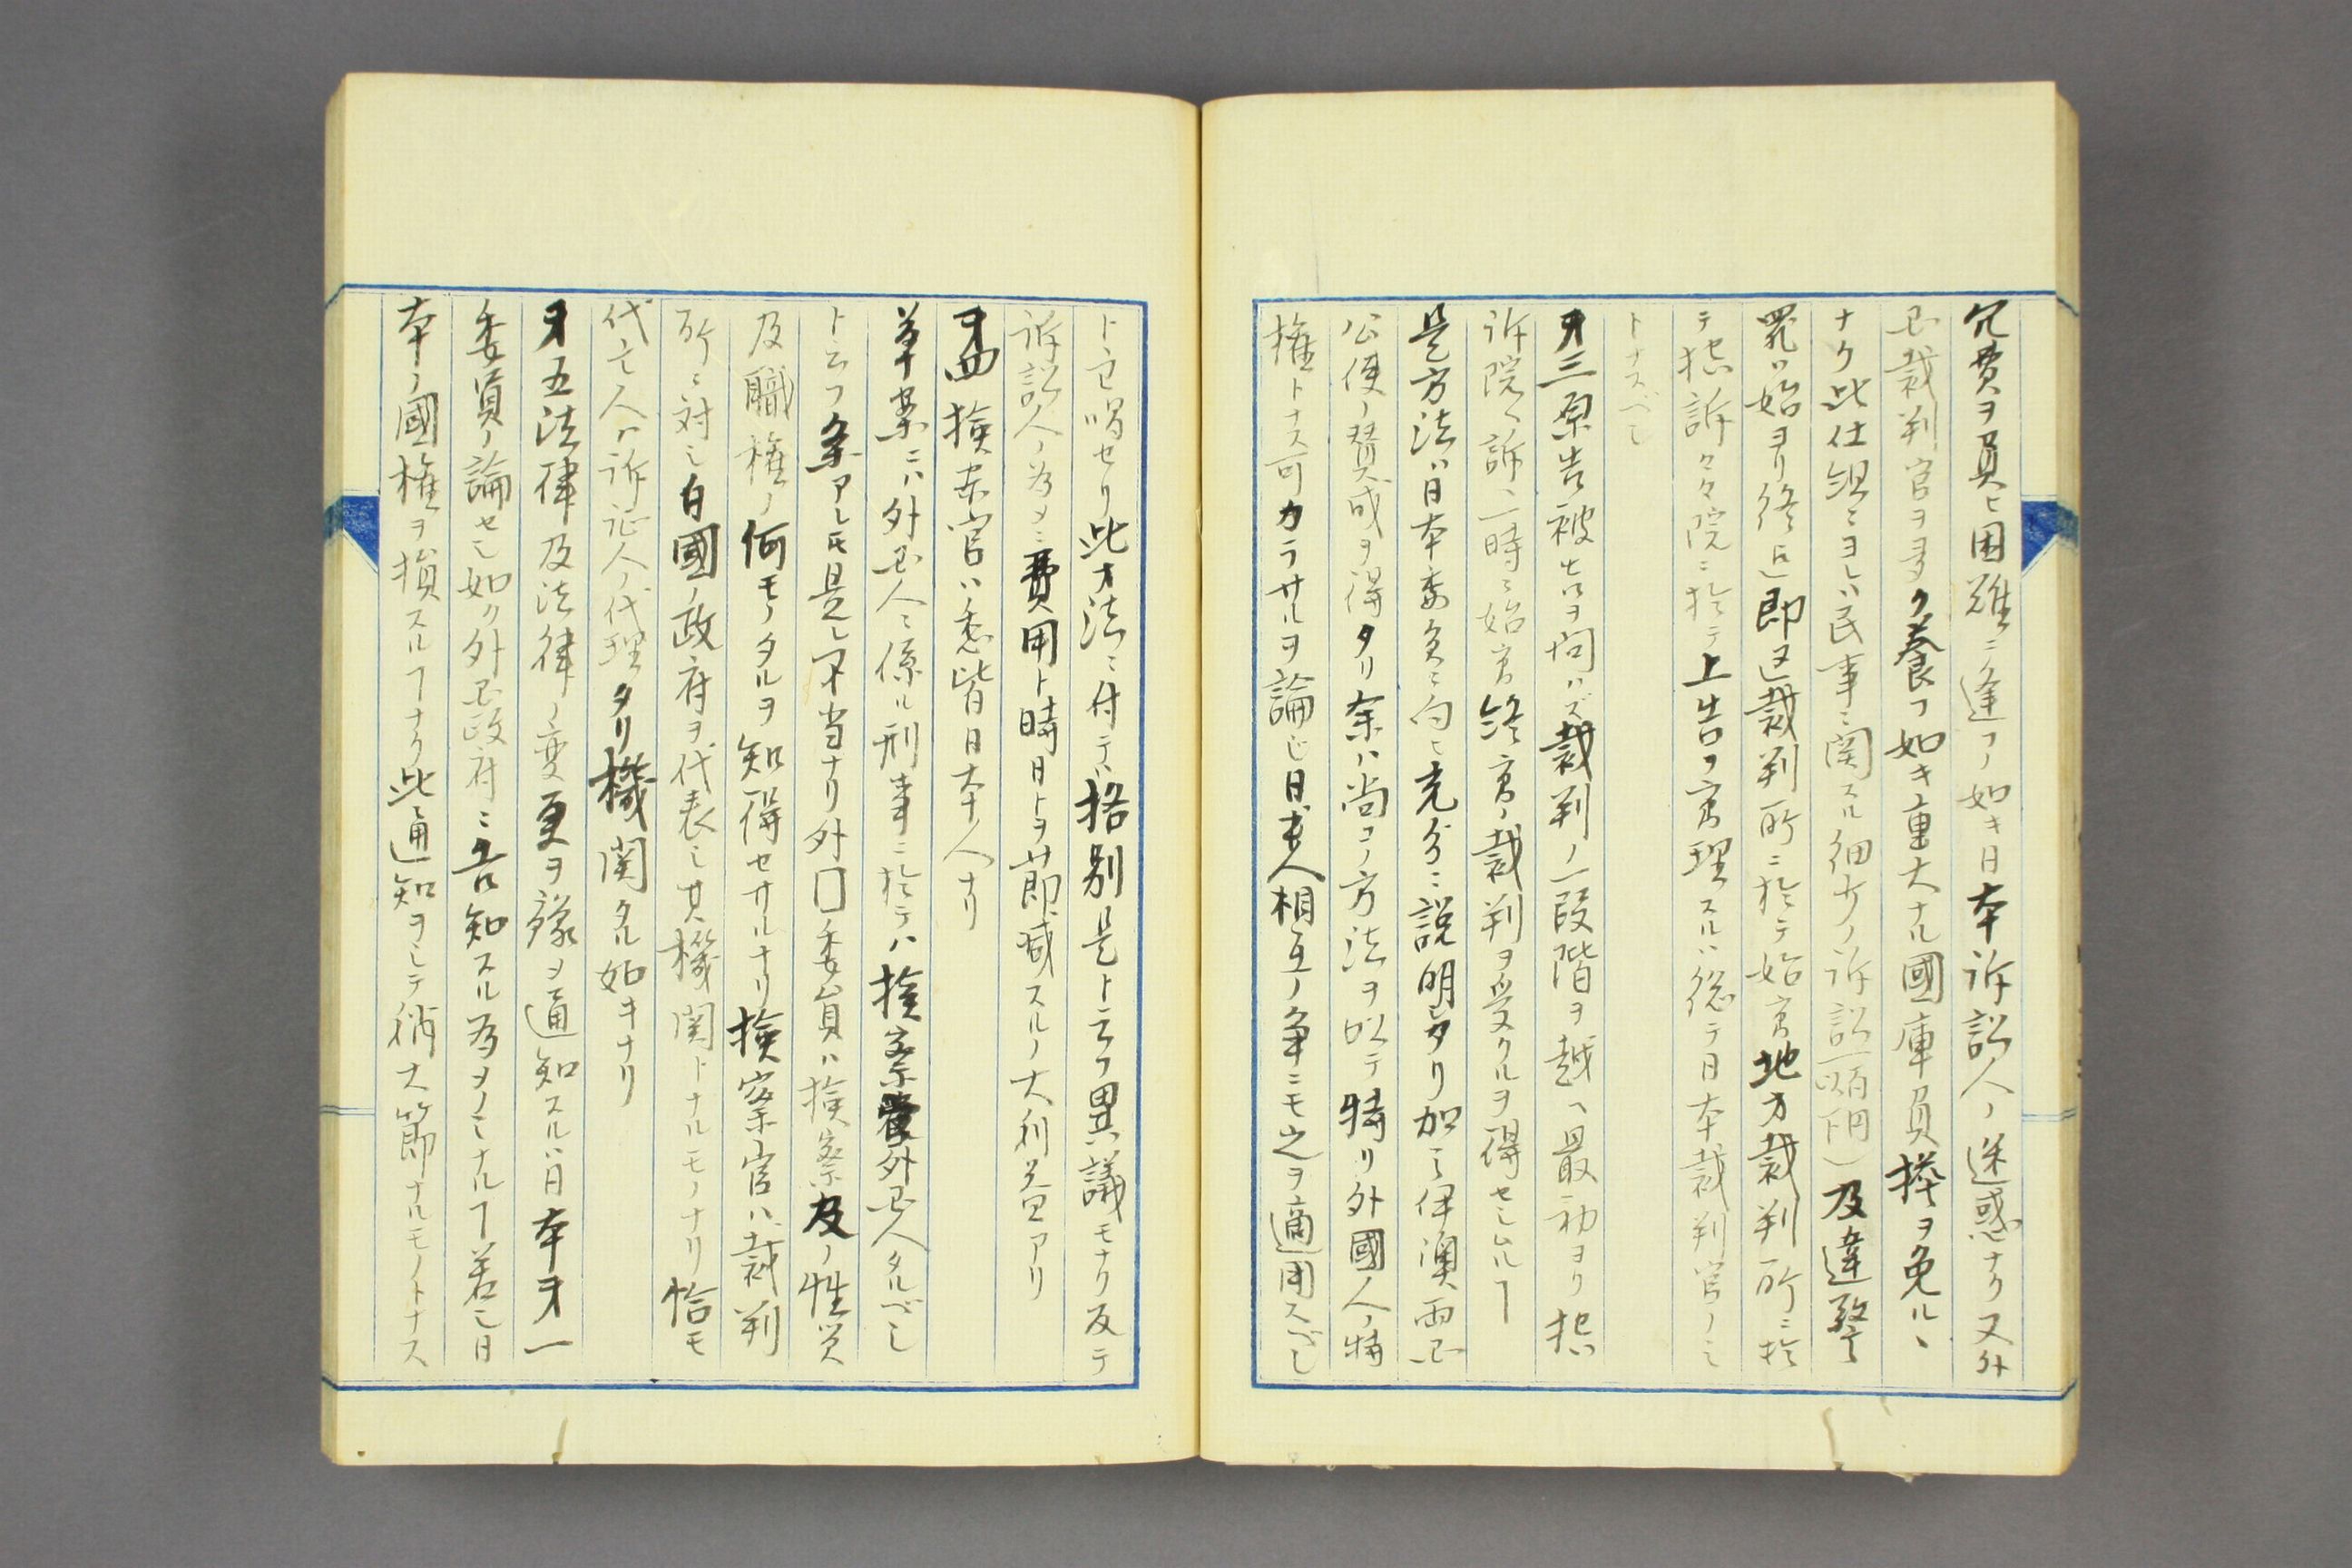 冗費ヲ員ヒ困難ニ逢フノ如キ日本訴訟人ノ迷惑ナク又外
国裁判官ヲ多ク養フ如キ重大ナル國庫負擔ヲ免ル、
ナク此仕組ニヨレハ民事ニ関スル細少ノ訴訟(百円以下)及違警
罪ハ始ヨリ終迄即区裁判所ニ於テ始審地方裁判所ニ於
テ控訴々々院ニ於テ上告ヲ審理スルハ総テ日本裁判官ノミ
トナスベシ
才三原告被告ヲ問ハズ裁判ノ一段階ヲ越ヘ最初ヨリ控
訴院ヘ訴ヘ一時ニ始審終審ノ裁判ヲ受クルヲ得セシムルヿ
是方法ハ日本委員ニ向ヒ充分ニ説明シタリ加之伊澳両国
公使ノ賛成ヲ得タリ余ハ尚コノ方法ヲ以テ特リ外國人ノ特
権トナス可カラサルヲ論シ日本人相互ノ争ニモ之ヲ適用スベシ
ト主唱セリ此方法ニ付テハ格別是ト云フ異議モナク反テ
訴訟人ノ為メニ費用ト時日トヲ節減スルノ大利益アリ
才四 検察官ハ悉皆日本人ナリ
草案ニハ外国人ニ係ル刑事ニ於テハ検察官外国人タルベシ
ト云フ条アレモ是レ不当ナリ外囗委員ハ検察及ノ性質
及職権ノ何モノタルヲ知得セサルナリ検察官ハ裁判
所ニ対シ自國ノ政府ヲ代表シ其機関トナルモノナリ恰モ
代言人ハ訴訟人ノ代理タリ機関タル如キナリ
才五法律及法律ノ変更ヲ豫メ通知スルハ日本才一
委員ノ論セシ如ク外国政府ニ告知スル為メノミナルヿ若シ日
本ノ國権ヲ損スルヿナク此通知ヲシテ稍大節ナルモノトナス